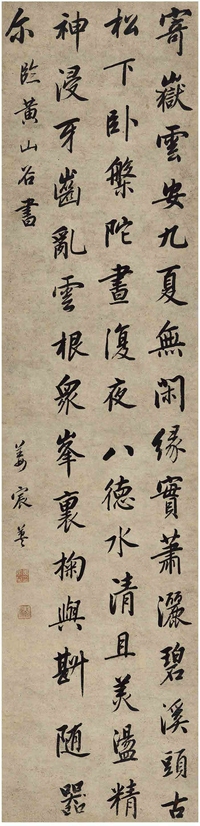 寄嶽雲安九夏無閑緣實蕭灑碧溪頭古
松下卧槃陀晝復夜八德水清且美盪精
神浸牙齒亂雲根衆峯裏掬與斟随器
尔 臨黄山谷書
姜宸英